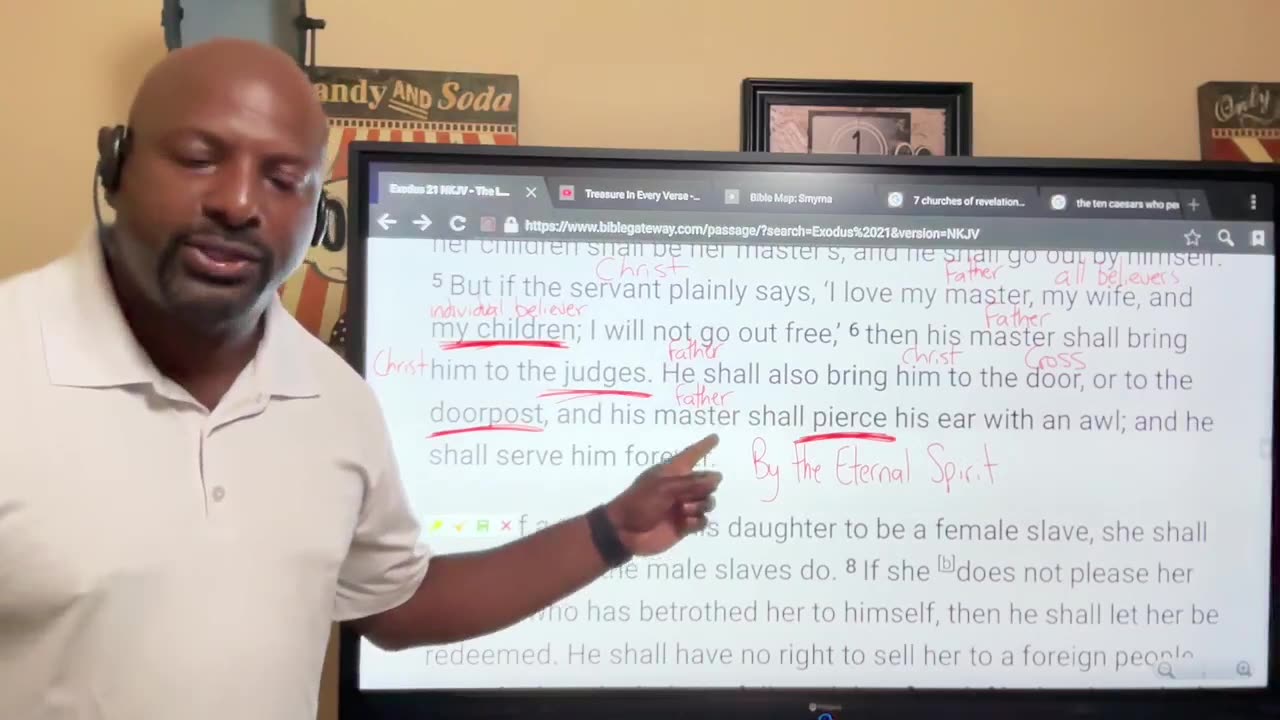 andy AND Soda
1
Only
Exodus 21 NKJV - The L...
Treasure In Every Verse -...
Bible Map: Smyrna
7 churches of revelation...
the ten caesars who pe
https://www.biblegateway.com/passage/?search=Exodus%2021&version=NKJV
her children shall be her master's, and he shall go out by himself.
Christ Father all believers
5 But if the servant plainly says, 'I love my master, my wife, and
individual believer Father
my children; I will not go out free,' 6 then his master shall bring
Father Christ Cross
Christ him to the judges. He shall also bring him to the door, or to the
Father
doorpost, and his master shall pierce his ear with an awl; and he
shall serve him forever.
By the Eternal Spirit
f a s daughter to be a female slave, she shall
male slaves do. 8 If she [b]does not please her
who has betrothed her to himself, then he shall let her be
redeemed. He shall have no right to sell her to a foreign people